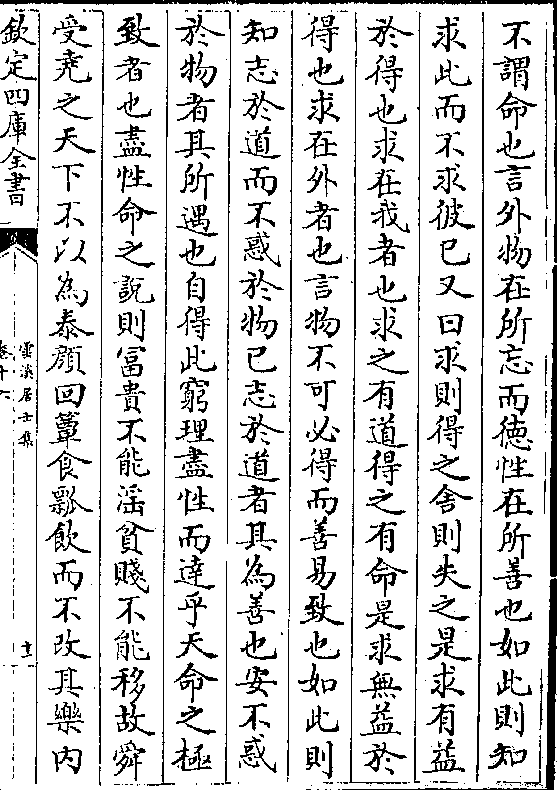 不謂命也言外物在所忘而德性在所善也如此則知
求此而不求彼已又曰求則得之舍則失之是求有益
於得也求在我者也求之有道得之有命是求無益於
得也求在外者也言物不可必得而善易致也如此則
知志於道而不惑於物已志於道者其為善也安不惑
於物者其所遇也自得此窮理盡性而達乎天命之極
致者也盡性命之說則富貴不能淫貧賤不能移故舜
受堯之天下不以為泰顔回簞食瓢飲而不改其樂内
欽定四庫全書
雲溪居士集
卷十六